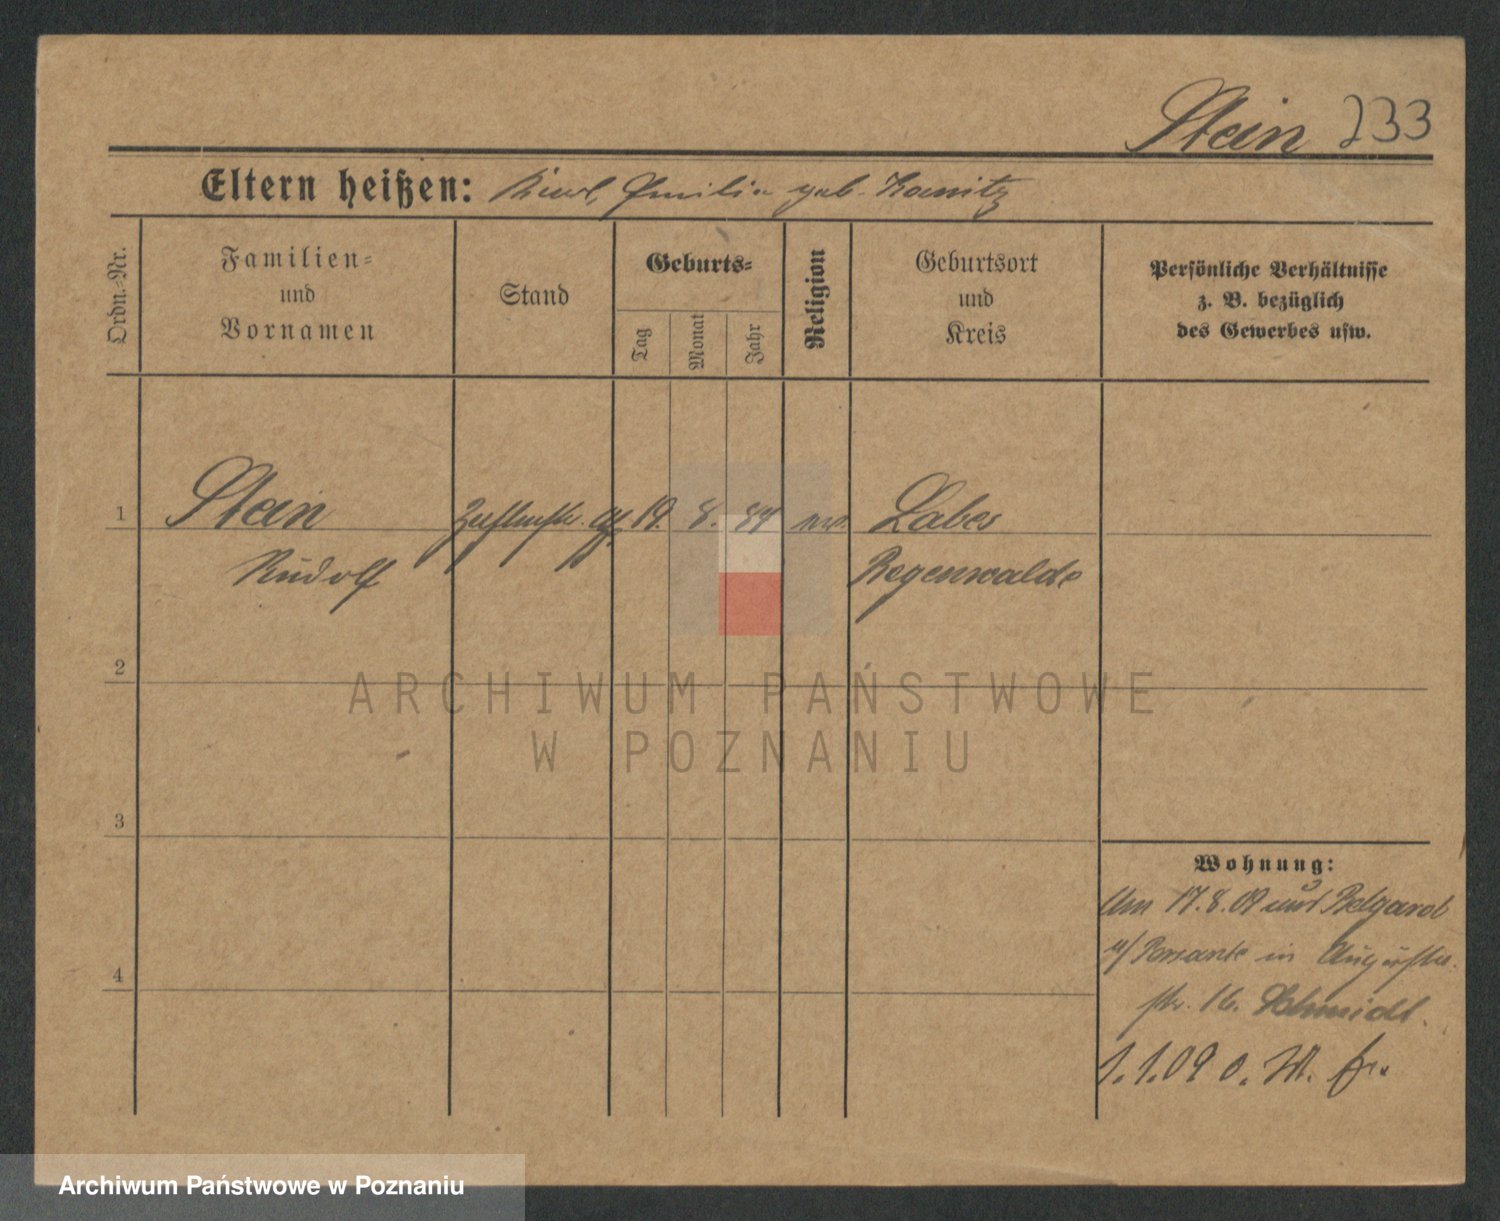 Stein 233
Eltern heißen: Emilie geb.
Ordn.-Nr.
Familien-
und
Vornamen
Stand
Geburts-
Tag
Monat
Jahr
Religion
Geburtsort
und
Kreis
Persönliche Verhältnisse
z. B. bezüglich
des Gewerbes usw.
1 Stein 19. 8. 84 Labes
Rudolf Regenwalde
2
ARCHIWUM PAŃSTWOWE
W POZNANIU
3
Wohnung:
Am 17.8.09 Belgard
Persante in
4
str. 16. Schmidt.
1.1.09 o. W.
Archiwum Państwowe w Poznaniu